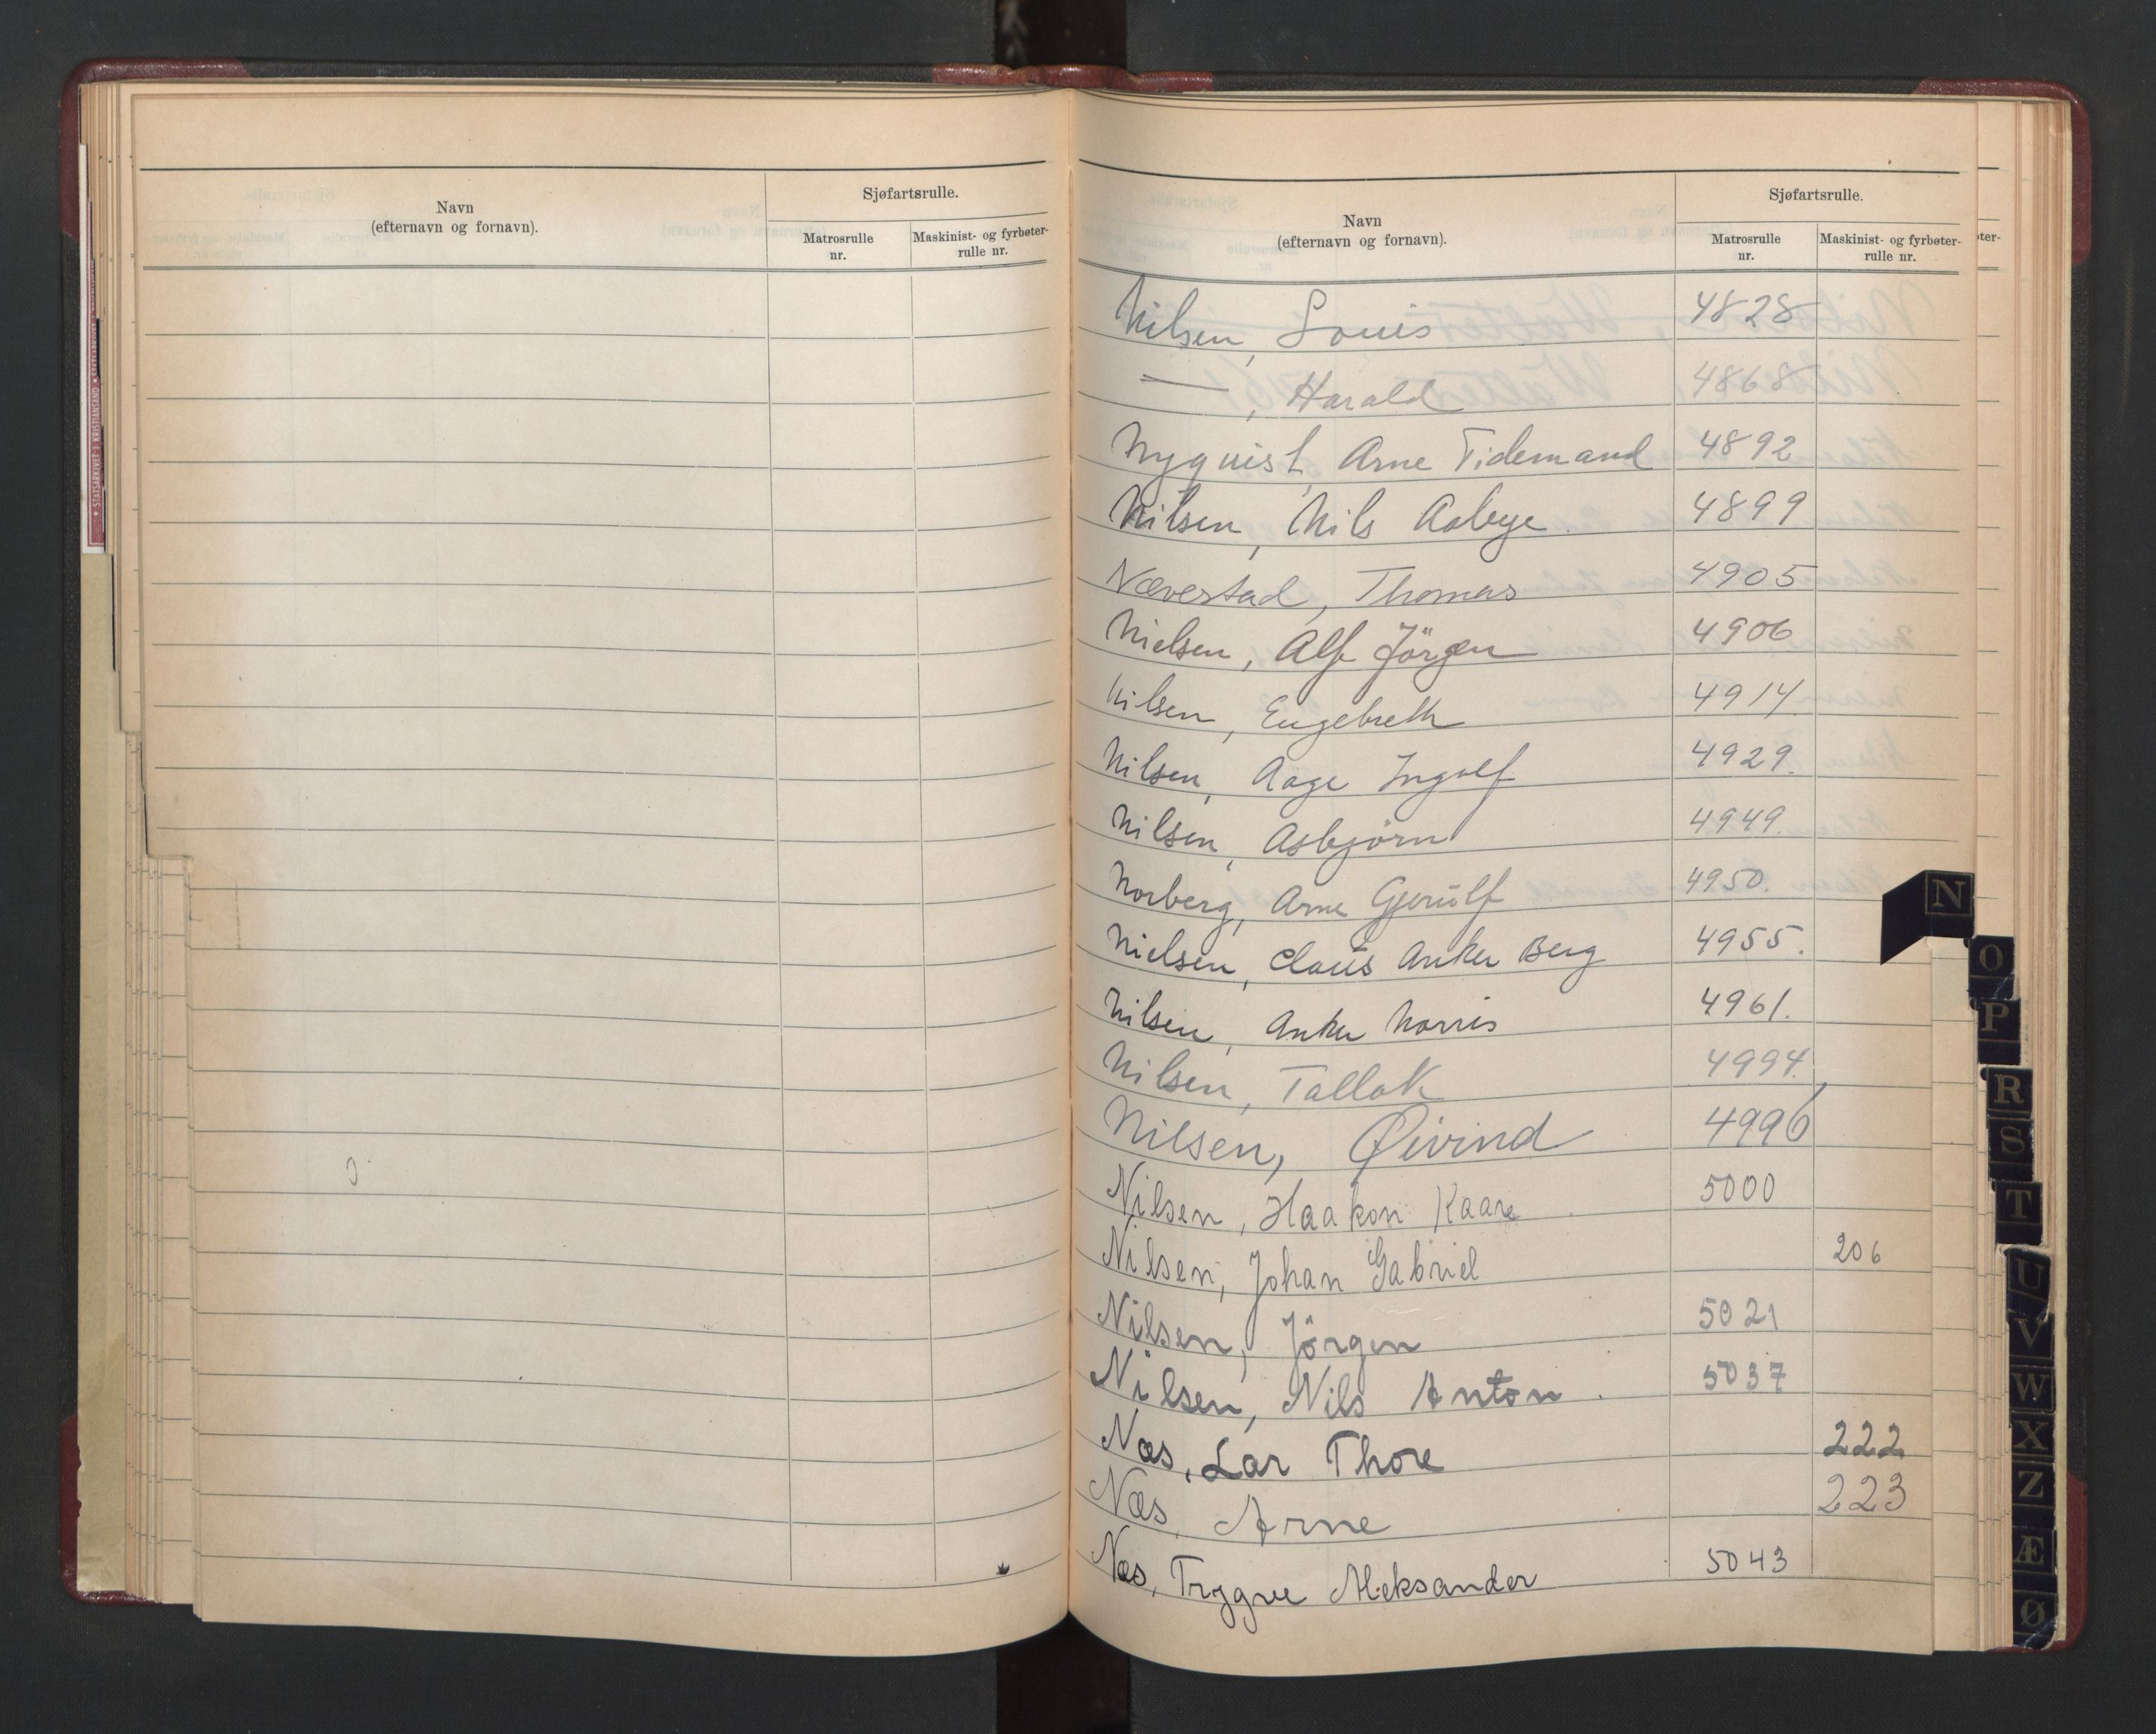 Navn
(efternavn og fornavn).
Sjøfartsrulle.
Matrosrulle
nr.
Maskinist- og fyrbøter-
rulle nr.
Navn
(efternavn og fornavn).
Sjøfartsrulle.
Matrosrulle
nr.
Maskinist- og fyrbøter-
rulle nr.
øter-
Nilsen, Louis 4828
— , Harald 4868
Nyquist, Arne Tidemand 4892
Nilsen, Nils Aabye 4899
Næverstad, Thomas 4905
Nielsen, Alf Jörgen 4906
Nilsen, Engebreth 4914
Nilsen, Aage Ingolf 4929.
Nilsen, Asbjörn 4949.
Norberg, Arne Gjerulf 4950.
Nielsen, Claus Anker Berg 4955.
Nilsen, Anker Norris 4961.
Nilsen, Tallak 4994.
Nilsen, Øivind 4996
Nilsen, Haakon Kaare 5000
Nilsen, Johan Gabriel 206
Nilsen, Jörgen 5021
Nilsen, Nils Anton 5037
Næs, Lar Thore 222
Næs, Arne 223
Næs, Trygve Aleksander 5043
N
O
P
R
S
T
U
V
W
X
Z
Æ
Ø